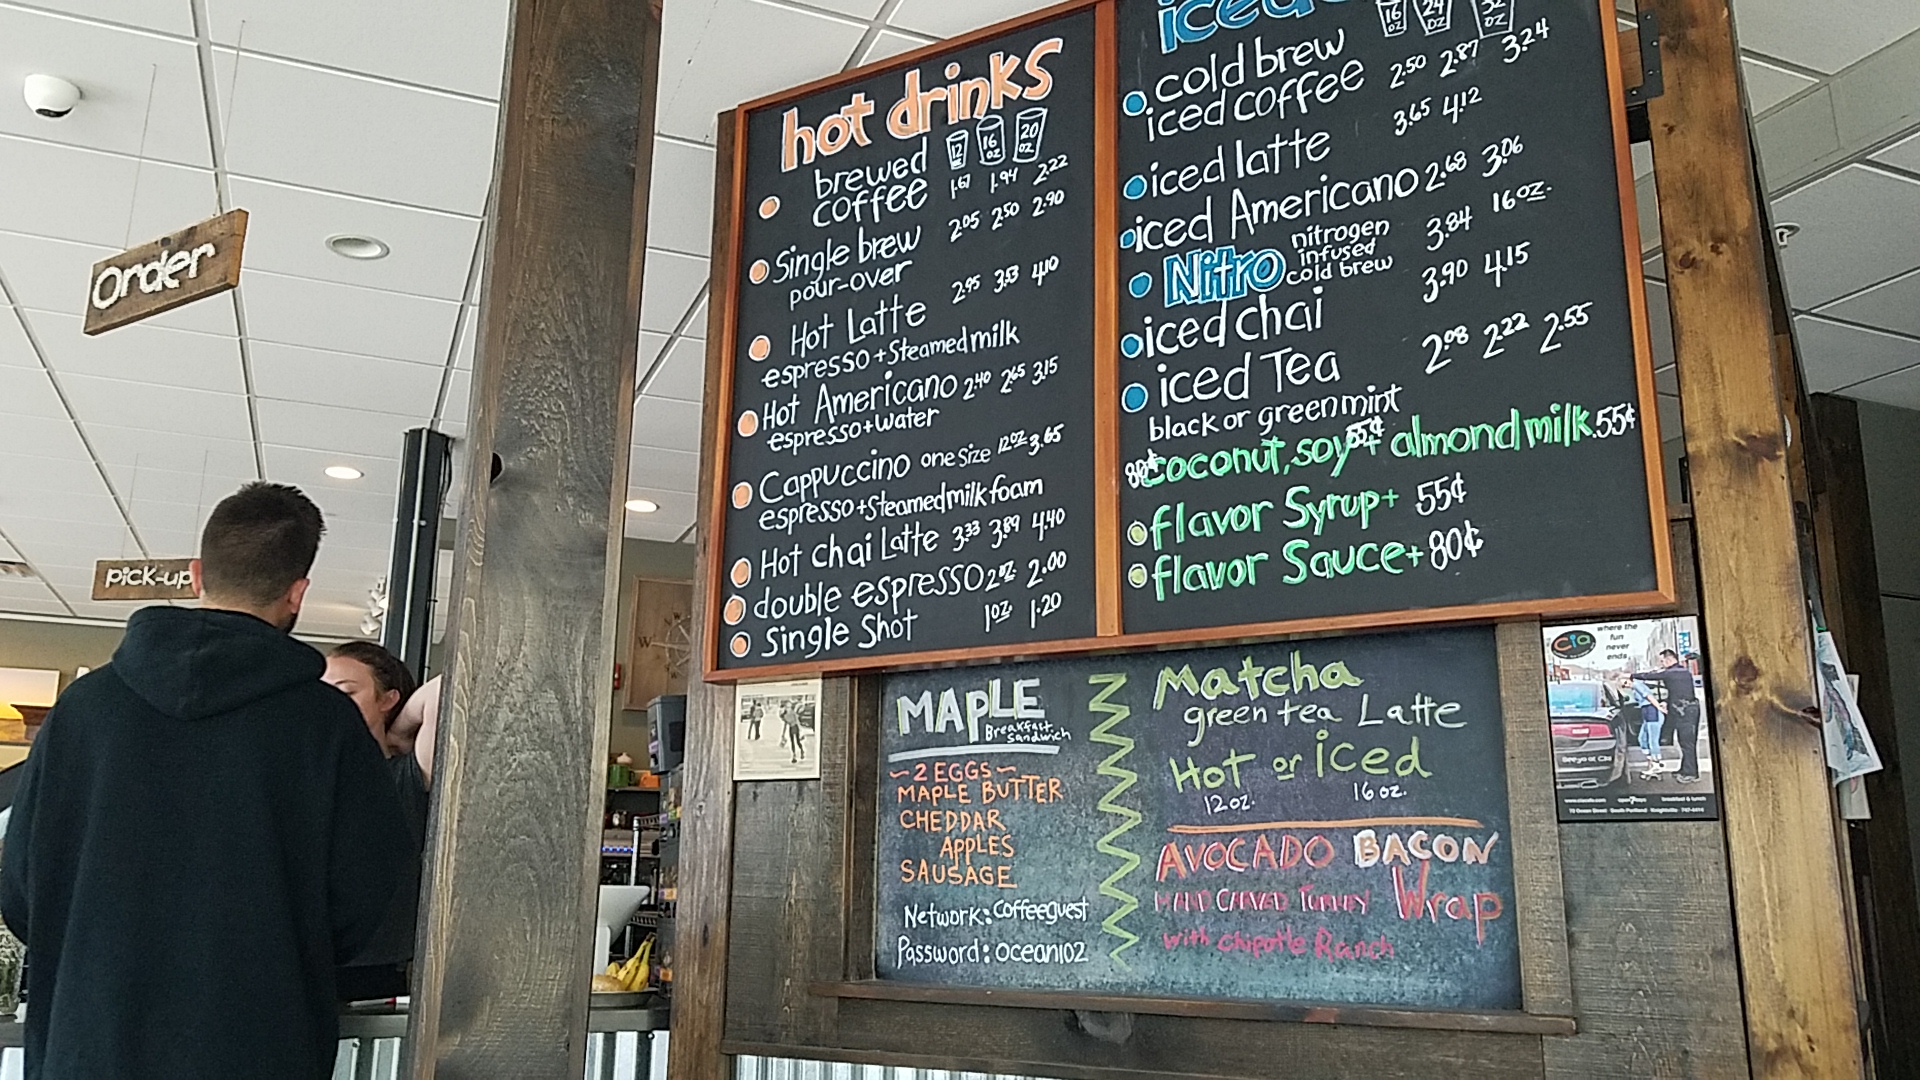 Order
pick-up
hot drinks
12 16 oz 20 oz
brewed coffee 1.67 1.94 2.22
Single brew 2.05 2.50 2.90
pour-over
Hot Latte 2.95 3.53 4.10
espresso + Steamed milk
Hot Americano 2.40 2.65 3.15
espresso + water
Cappuccino one Size 12oz 3.65
espresso + Steamed milk foam
Hot chai Latte 3.33 3.89 4.40
double espresso 2oz 2.00
Single Shot 1oz 1.20
iced
16 oz 24 oz 32 oz
cold brew
iced coffee 2.50 2.87 3.24
iced latte 3.65 4.12
iced Americano 2.68 3.06
Nitro nitrogen infused cold brew 3.84 16oz.
iced chai 3.90 4.15
iced Tea 2.08 2.22 2.55
black or green mint
80¢ coconut, soy 55¢ + almond milk .55¢
flavor Syrup + 55¢
flavor Sauce + 80¢
MAPLE
Breakfast Sandwich
~ 2 EGGS ~
MAPLE BUTTER
CHEDDAR
APPLES
SAUSAGE
Network: Coffeeguest
Password: ocean102
Matcha
green tea Latte
Hot or iced
12oz. 16 oz.
AVOCADO BACON
HAND CARVED TURKEY Wrap
with chipotle Ranch
cia
where the
fun
never
ends
W